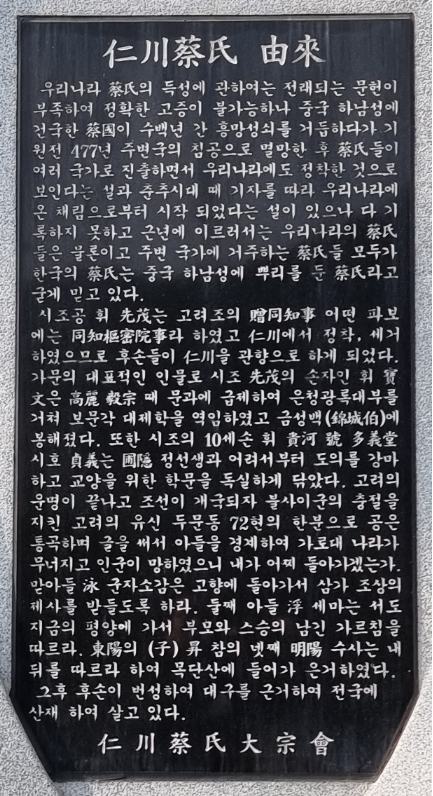 仁川蔡氏 由來
우리나라 蔡氏의 득성에 관하여는 전래되는 문헌이
부족하여 정확한 고증이 불가능하나 중국 하남성에
건국한 蔡國이 수백년 간 흥망성쇠를 거듭하다가 기
원전 477년 주변국의 침공으로 멸망한 후 蔡氏들이
여러 국가로 진출하면서 우리나라에도 정착한 것으로
보인다는 설과 춘추시대 때 기자를 따라 우리나라에
온 채림으로부터 시작 되었다는 설이 있으나 다 기
록하지 못하고 근년에 이르러서는 우리나라의 蔡氏
들은 물론이고 주변 국가에 거주하는 蔡氏들 모두가
한국의 蔡氏는 중국 하남성에 뿌리를 둔 蔡氏라고
굳게 믿고 있다.
시조공 휘 先茂는 고려조의 贈同知事 어떤 파보
에는 同知樞密院事라 하였고 仁川에서 정착, 세거
하였으므로 후손들이 仁川을 관향으로 하게 되었다.
가문의 대표적인 인물로 시조 先茂의 손자인 휘 寶
文은 高麗 毅宗 때 문과에 급제하여 은청광록대부를
거쳐 보문각 대제학을 역임하였고 금성백(錦城伯)에
봉해졌다. 또한 시조의 10세손 휘 貴河 號 多義堂
시호 貞義는 圃隱 정선생과 어려서부터 도의를 강마
하고 교양을 위한 학문을 독실하게 닦았다. 고려의
운명이 끝나고 조선이 개국되자 불사이군의 충절을
지킨 고려의 유신 두문동 72현의 한분으로 공은
통곡하며 글을 써서 아들을 경계하여 가로대 나라가
무너지고 인군이 망하였으니 내가 어찌 돌아가겠는가.
맏아들 泳 군자소감은 고향에 돌아가서 삼가 조상의
제사를 받들도록 하라. 둘째 아들 浮 세마는 서도
지금의 평양에 가서 부모와 스승의 남긴 가르침을
따르라. 東陽의 (子) 昇 참의 넷째 明陽 수사는 내
뒤를 따르라 하여 목단산에 들어가 은거하였다.
그후 후손이 번성하여 대구를 근거하여 전국에
산재 하여 살고 있다.
仁川蔡氏大宗會